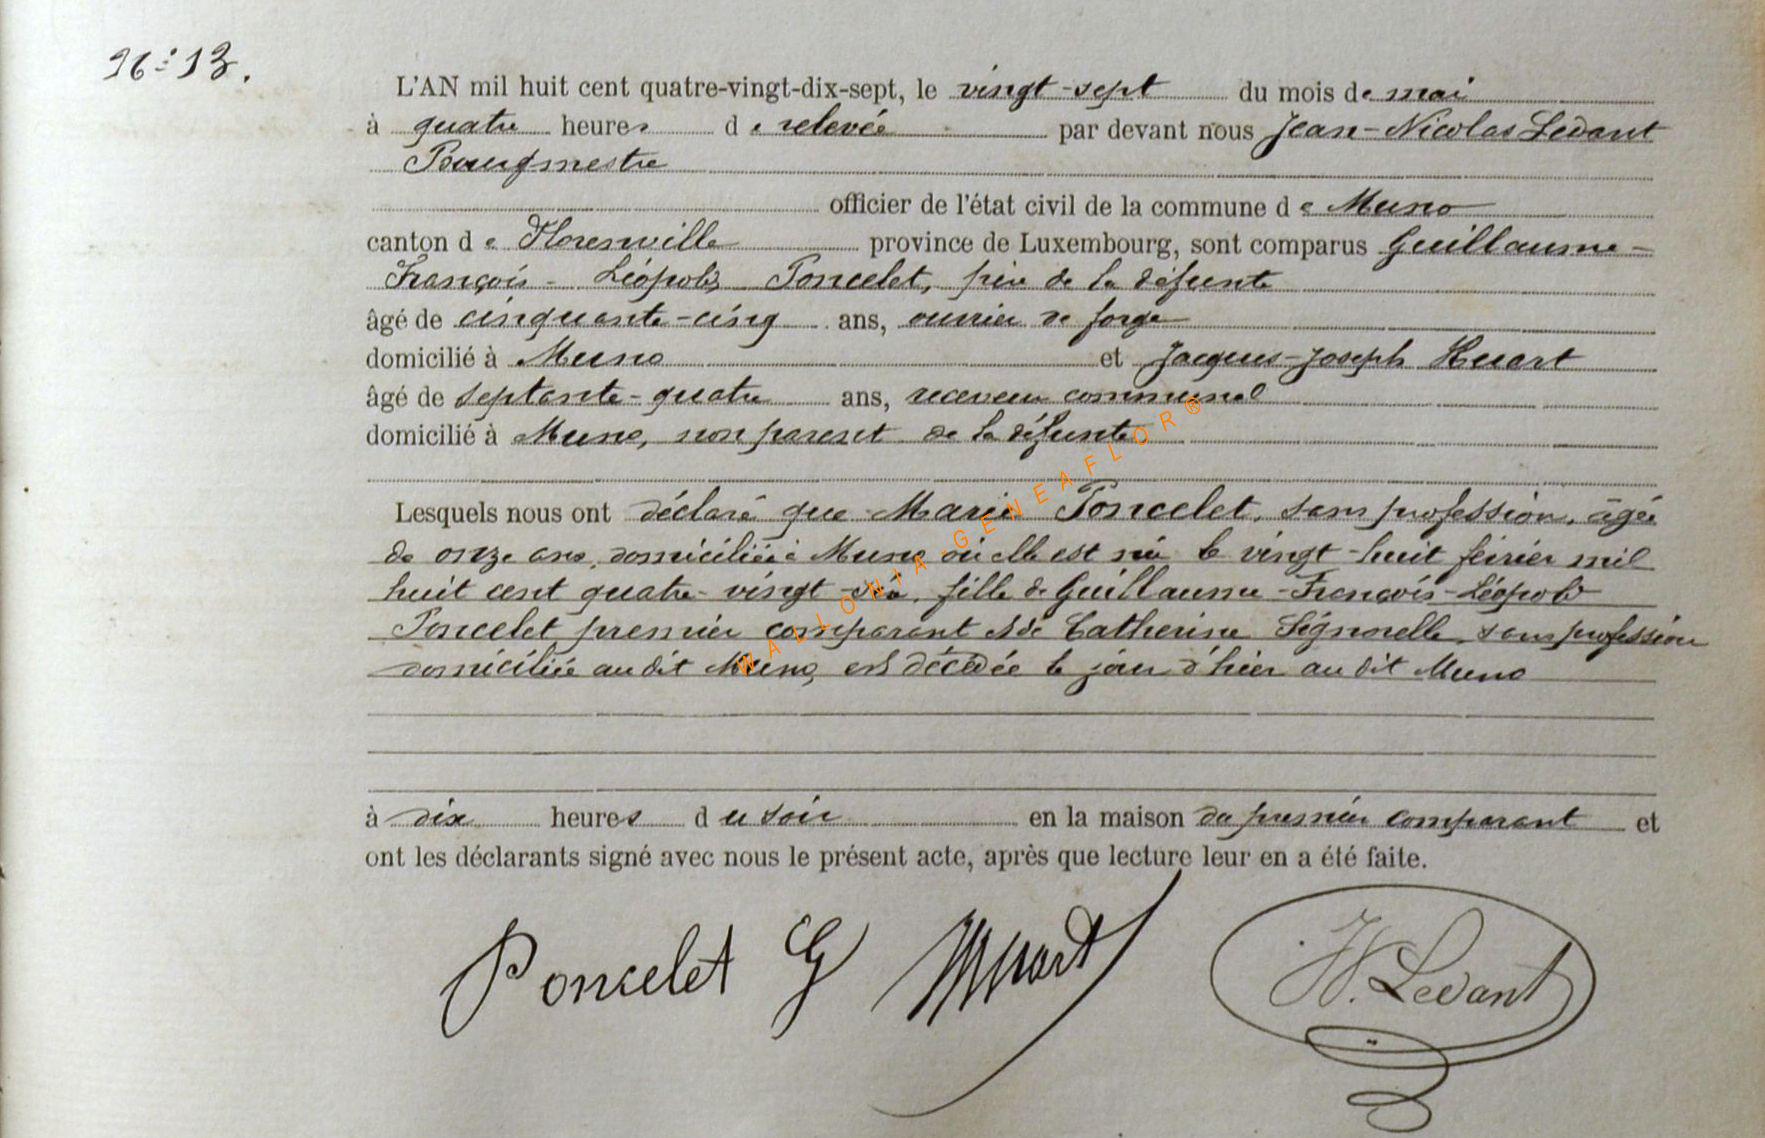 N° 13.
L'AN mil huit cent quatre-vingt-dix-sept, le vingt-sept du mois de mai
à quatre heures de relevée par devant nous Jean-Nicolas Ledant
Bourgmestre
officier de l'état civil de la commune de Muno
canton de Florenville province de Luxembourg, sont comparus Guillaume-
François-Léopold Poncelet, père de la défunte
âgé de cinquante-cinq ans, ouvrier de forge
domicilié à Muno et Jacques-Joseph Huart
âgé de septante-quatre ans, receveur communal
domicilié à Muno, non parent de la défunte
Lesquels nous ont déclaré que Marie Poncelet, sans profession, âgée
de onze ans, domiciliée à Muno où elle est née le vingt-huit février mil
huit cent quatre-vingt-six, fille de Guillaume-François-Léopold
Poncelet premier comparant et de Catherine sans profession
domiciliée au dit Muno, est décédée le jour d'hier au dit Muno
à dix heures du soir en la maison du premier comparant et
ont les déclarants signé avec nous le présent acte, après que lecture leur en a été faite.
Poncelet G Huart N. Ledant
WALLONIA-GENEAFLOR®